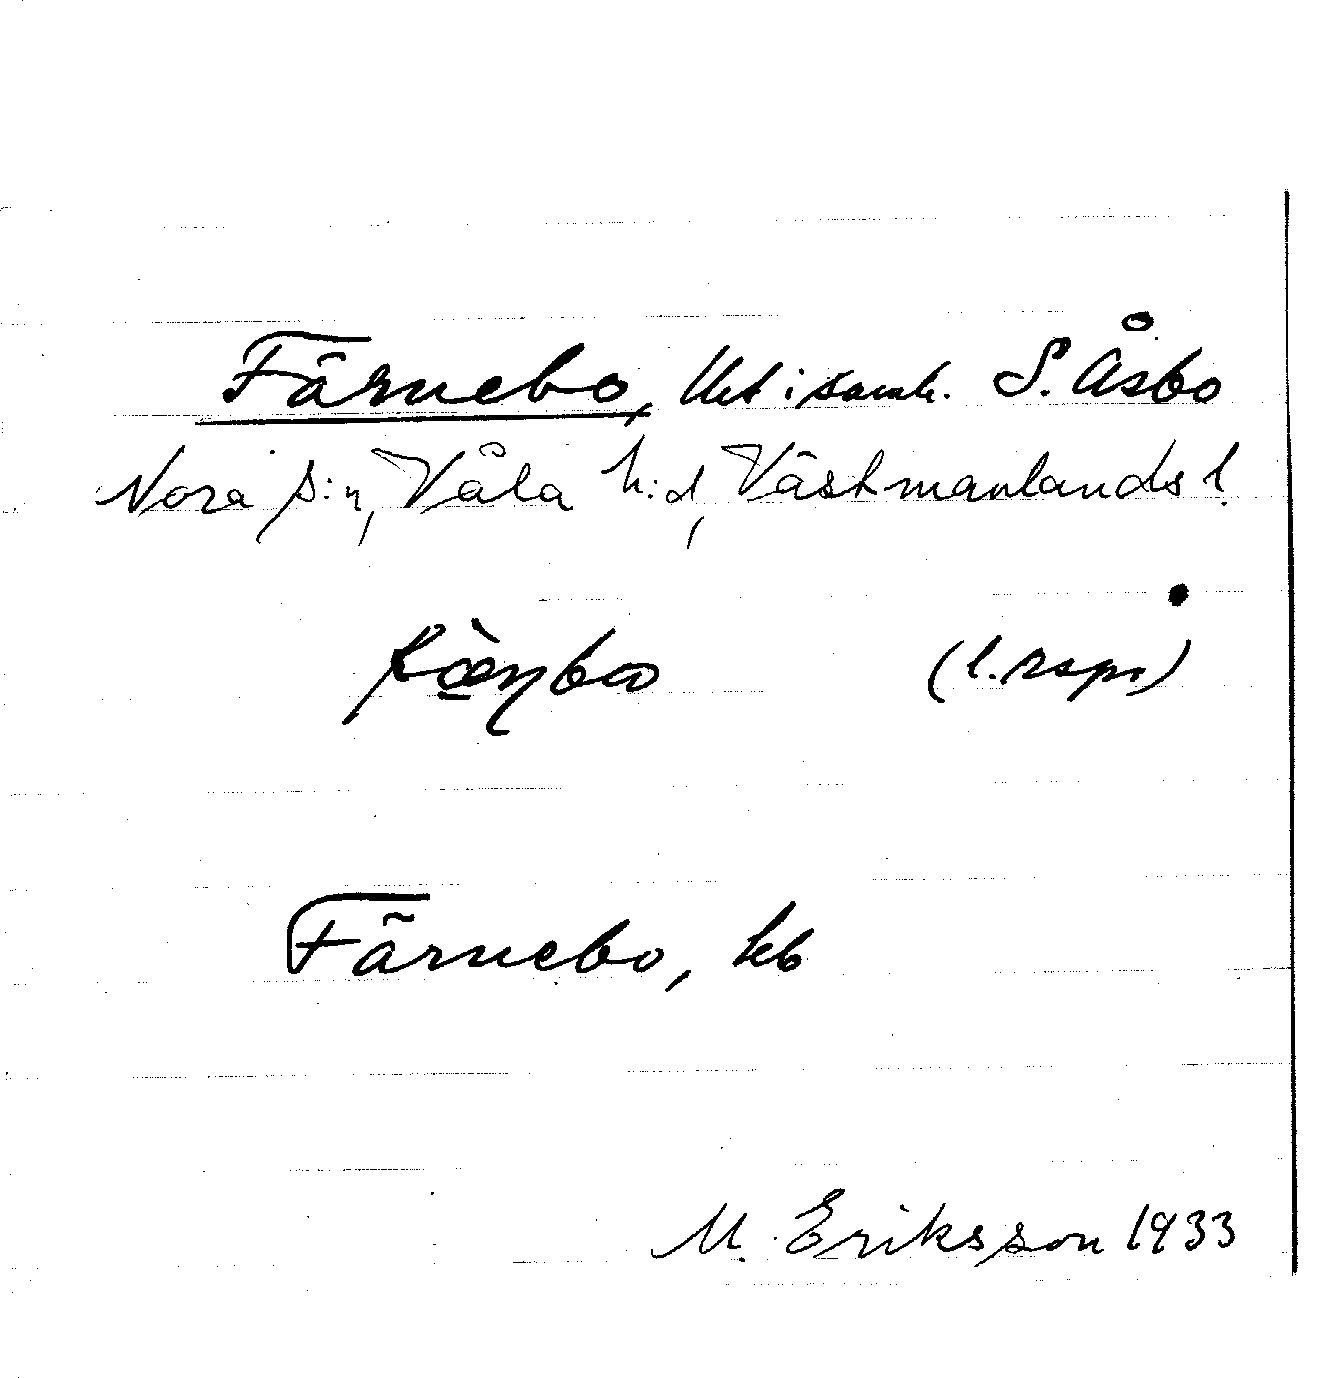 Färnebo, Utj i samh. S. Åsbo
Nora s:n, Våla h:d, Västmanlands l.
(l. rspr)
Färnebo, kb
M. Eriksson 1933